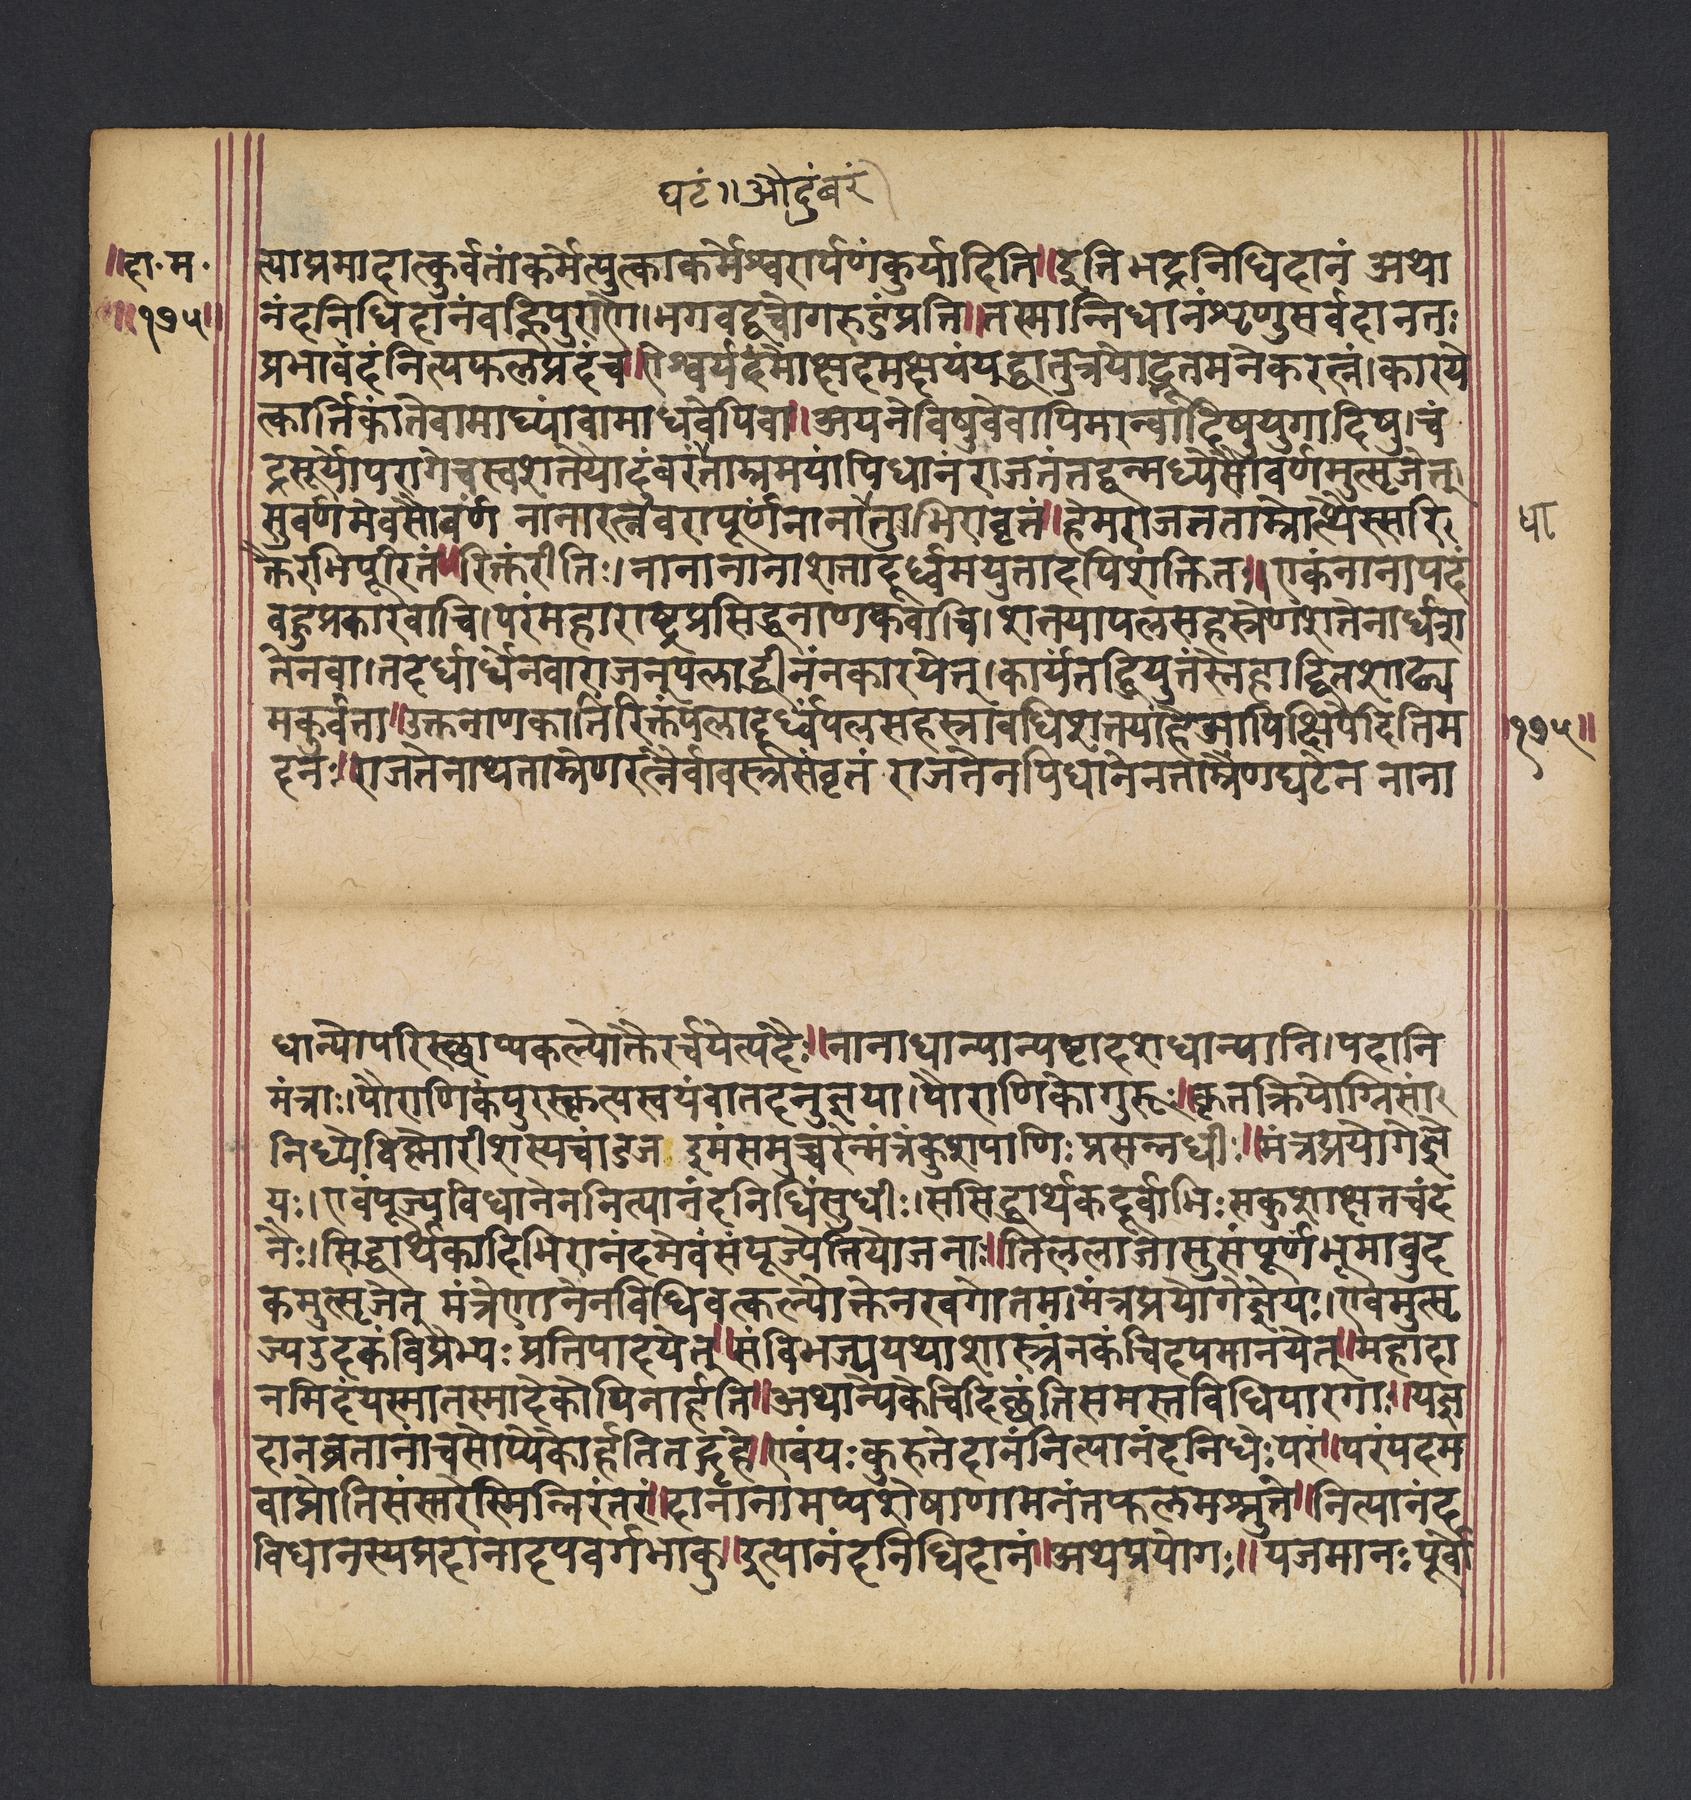 घटं॥औदुंबरं
॥दा॰म॰
॥१७५॥
त्याप्रमादात्कुर्वतांकर्मेत्युत्काकर्मेश्वरार्पणंकुर्यादिति॥इति भद्रनिधिदानं अथा
नंदनिधिदानंवह्निपुराणे।भगवद्वचोगरुडंप्रति॥तस्मान्निधानंशृणुसर्वदानतः
प्रभावदंनित्यफलप्रदंच॥ऐश्वर्यदंमोक्षदमक्षयंयद्धातुत्रयोद्भूतमनेकरत्नं।कारये
त्कार्त्तिकांतेवामाघ्यांवामाधवेपिवा॥अयनेविषुवेवापिमान्वादिषुयुगादिषु।चं
द्रसूर्योपरागेचस्वशक्तयोदंबरंताम्रमयांपिधानंराजतंतद्वन्मध्येसौवर्णमुत्सृजेत्।
सुवर्णमेवसौवर्णं नानारत्नैवरापूर्णनानाधातुभिरावृतं॥हेमराजतताम्रोत्थैस्सारि
धा
क्तैरभिपूरितं॥रिक्तंरीतिः।नानानानाशताद्दूर्ध्वमयुतादपिशक्तितः॥एकंनानापदं
बहुप्रकारवाचि।परंमहाराष्ट्रप्रसिद्धनाणकवाचि।शतयापलसहस्रेणशतेनार्धश
तेनवा।तदर्धार्धेनवाराजन्पलाद्धीनंनकारयेत्।कार्यंतद्वियुतंस्नेहाद्वित्तशाठ्य
मकुर्वता॥उक्तनाणकातिरिक्तंपलादूर्ध्वंपलसहस्रावधिशक्तयाहेआपिक्षिपेदितिम
१७५॥
दनः॥राजतेनाथताम्रेणरत्नैर्वावस्त्रसंवृतं राजतेनपिधानेनताम्रेणघटेन नाना
धान्योपरिस्छाप्यकल्पोक्तैरर्चयेत्पदैः॥नानाधान्यान्यष्टादशधान्यानि।पदानि
मंत्राः।पौराणिकंपुरस्कृत्यस्वयंवातदनुज्ञया।पौराणिकोगुरुः॥कृतक्रियोग्निसां
निध्येविष्णोरीशस्यचांडज इमंसमुच्चरेन्मंत्रंकुशपाणिः प्रसन्नधीः॥मंत्रप्रयोगेज्ञे
यः।एवंपूज्यविधानेननित्यानंदनिधिंसुधीः।ससिद्धार्थकदूर्वाभिः सकुशाक्षतचंद
नैः।सिद्धार्थकादिभिरानंदमेवंसंपूज्येतियोजना॥तिललाजैःसुसंपूर्णभूमावुद
कमुत्सृजेत् मंत्रेणानेनविधिवत्कल्पोक्तेनखगोत्तम।मंत्रप्रयोगेज्ञेयः।एवमुत्सृ
ज्यउदकंविप्रेभ्यः प्रतिपादयेत्॥संविभज्ययथाशास्त्रंनकंचिदपमानयेत्॥महादा
नमिदंयस्मात्तस्मादेकोपिनार्हति॥अथान्येकेचिदिछंतिसमस्तविधिपारगाः॥यज्ञ
दानव्रतानांचसोप्येकोर्हतितद्गृहे॥एवंयः कुरुतेदानंनित्यानंदनिधेः परं॥परंपदम
वाप्नोतिसंसारेस्मिन्निरंतरं॥दानानामप्यशेषाणामनंतफलमश्नुते॥नित्यानंद
विधानस्यप्रदानादपवर्गभाक्॥इत्यानंदनिधिदानं॥अथप्रयोगः॥यजमानः पूर्वो